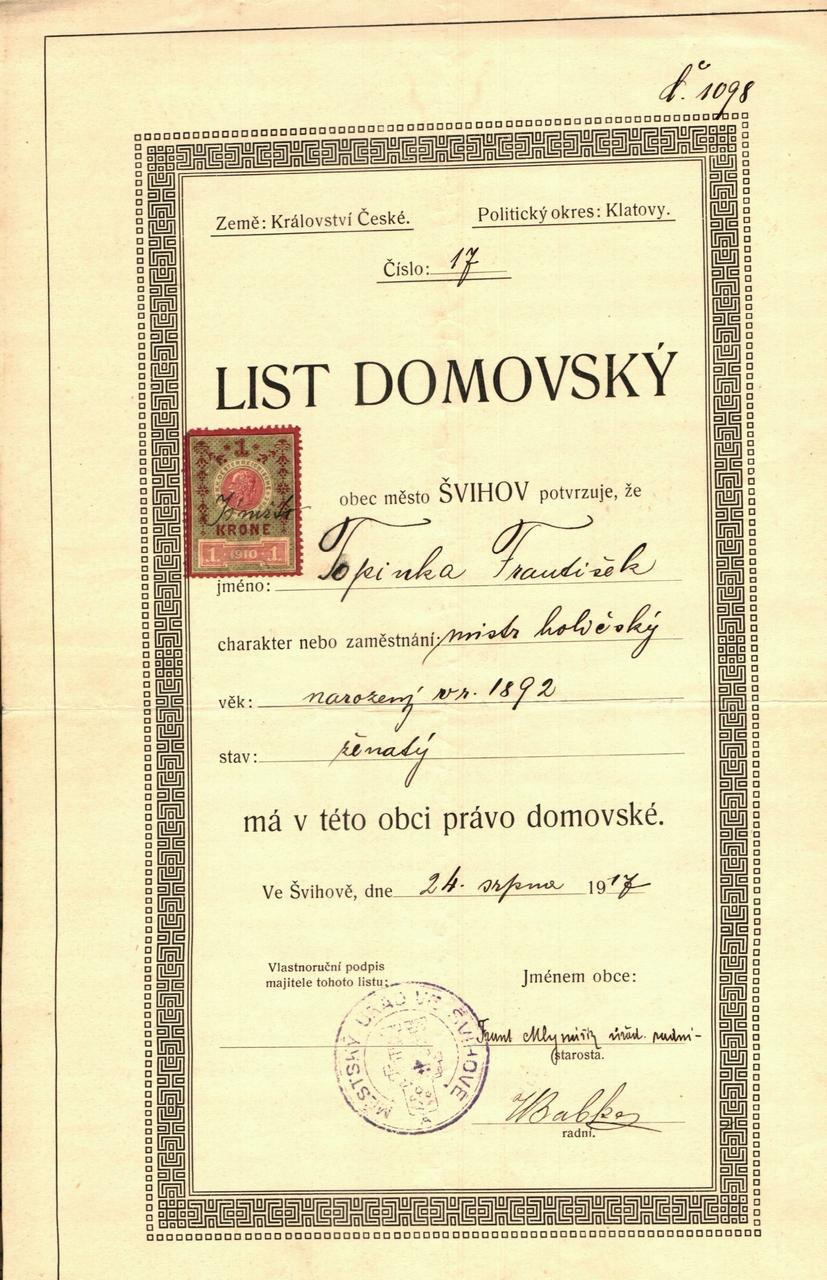 č. 1098
Země: Království České. Politický okres: Klatovy.
Číslo: 17
LIST DOMOVSKÝ
1
KRONE
1 1910 1
obec město ŠVIHOV potvrzuje, že
jméno: Topinka František
charakter nebo zaměstnání: mistr holičský
věk: narozený v r. 1892
stav: ženatý
má v této obci právo domovské.
Ve Švihově, dne 24. srpna 1917
Vlastnoruční podpis
majitele tohoto listu:
Jménem obce:
MĚSTSKÝ ÚŘAD VE ŠVIHOVĚ
Frant úřad. radní-
starosta.
radní.